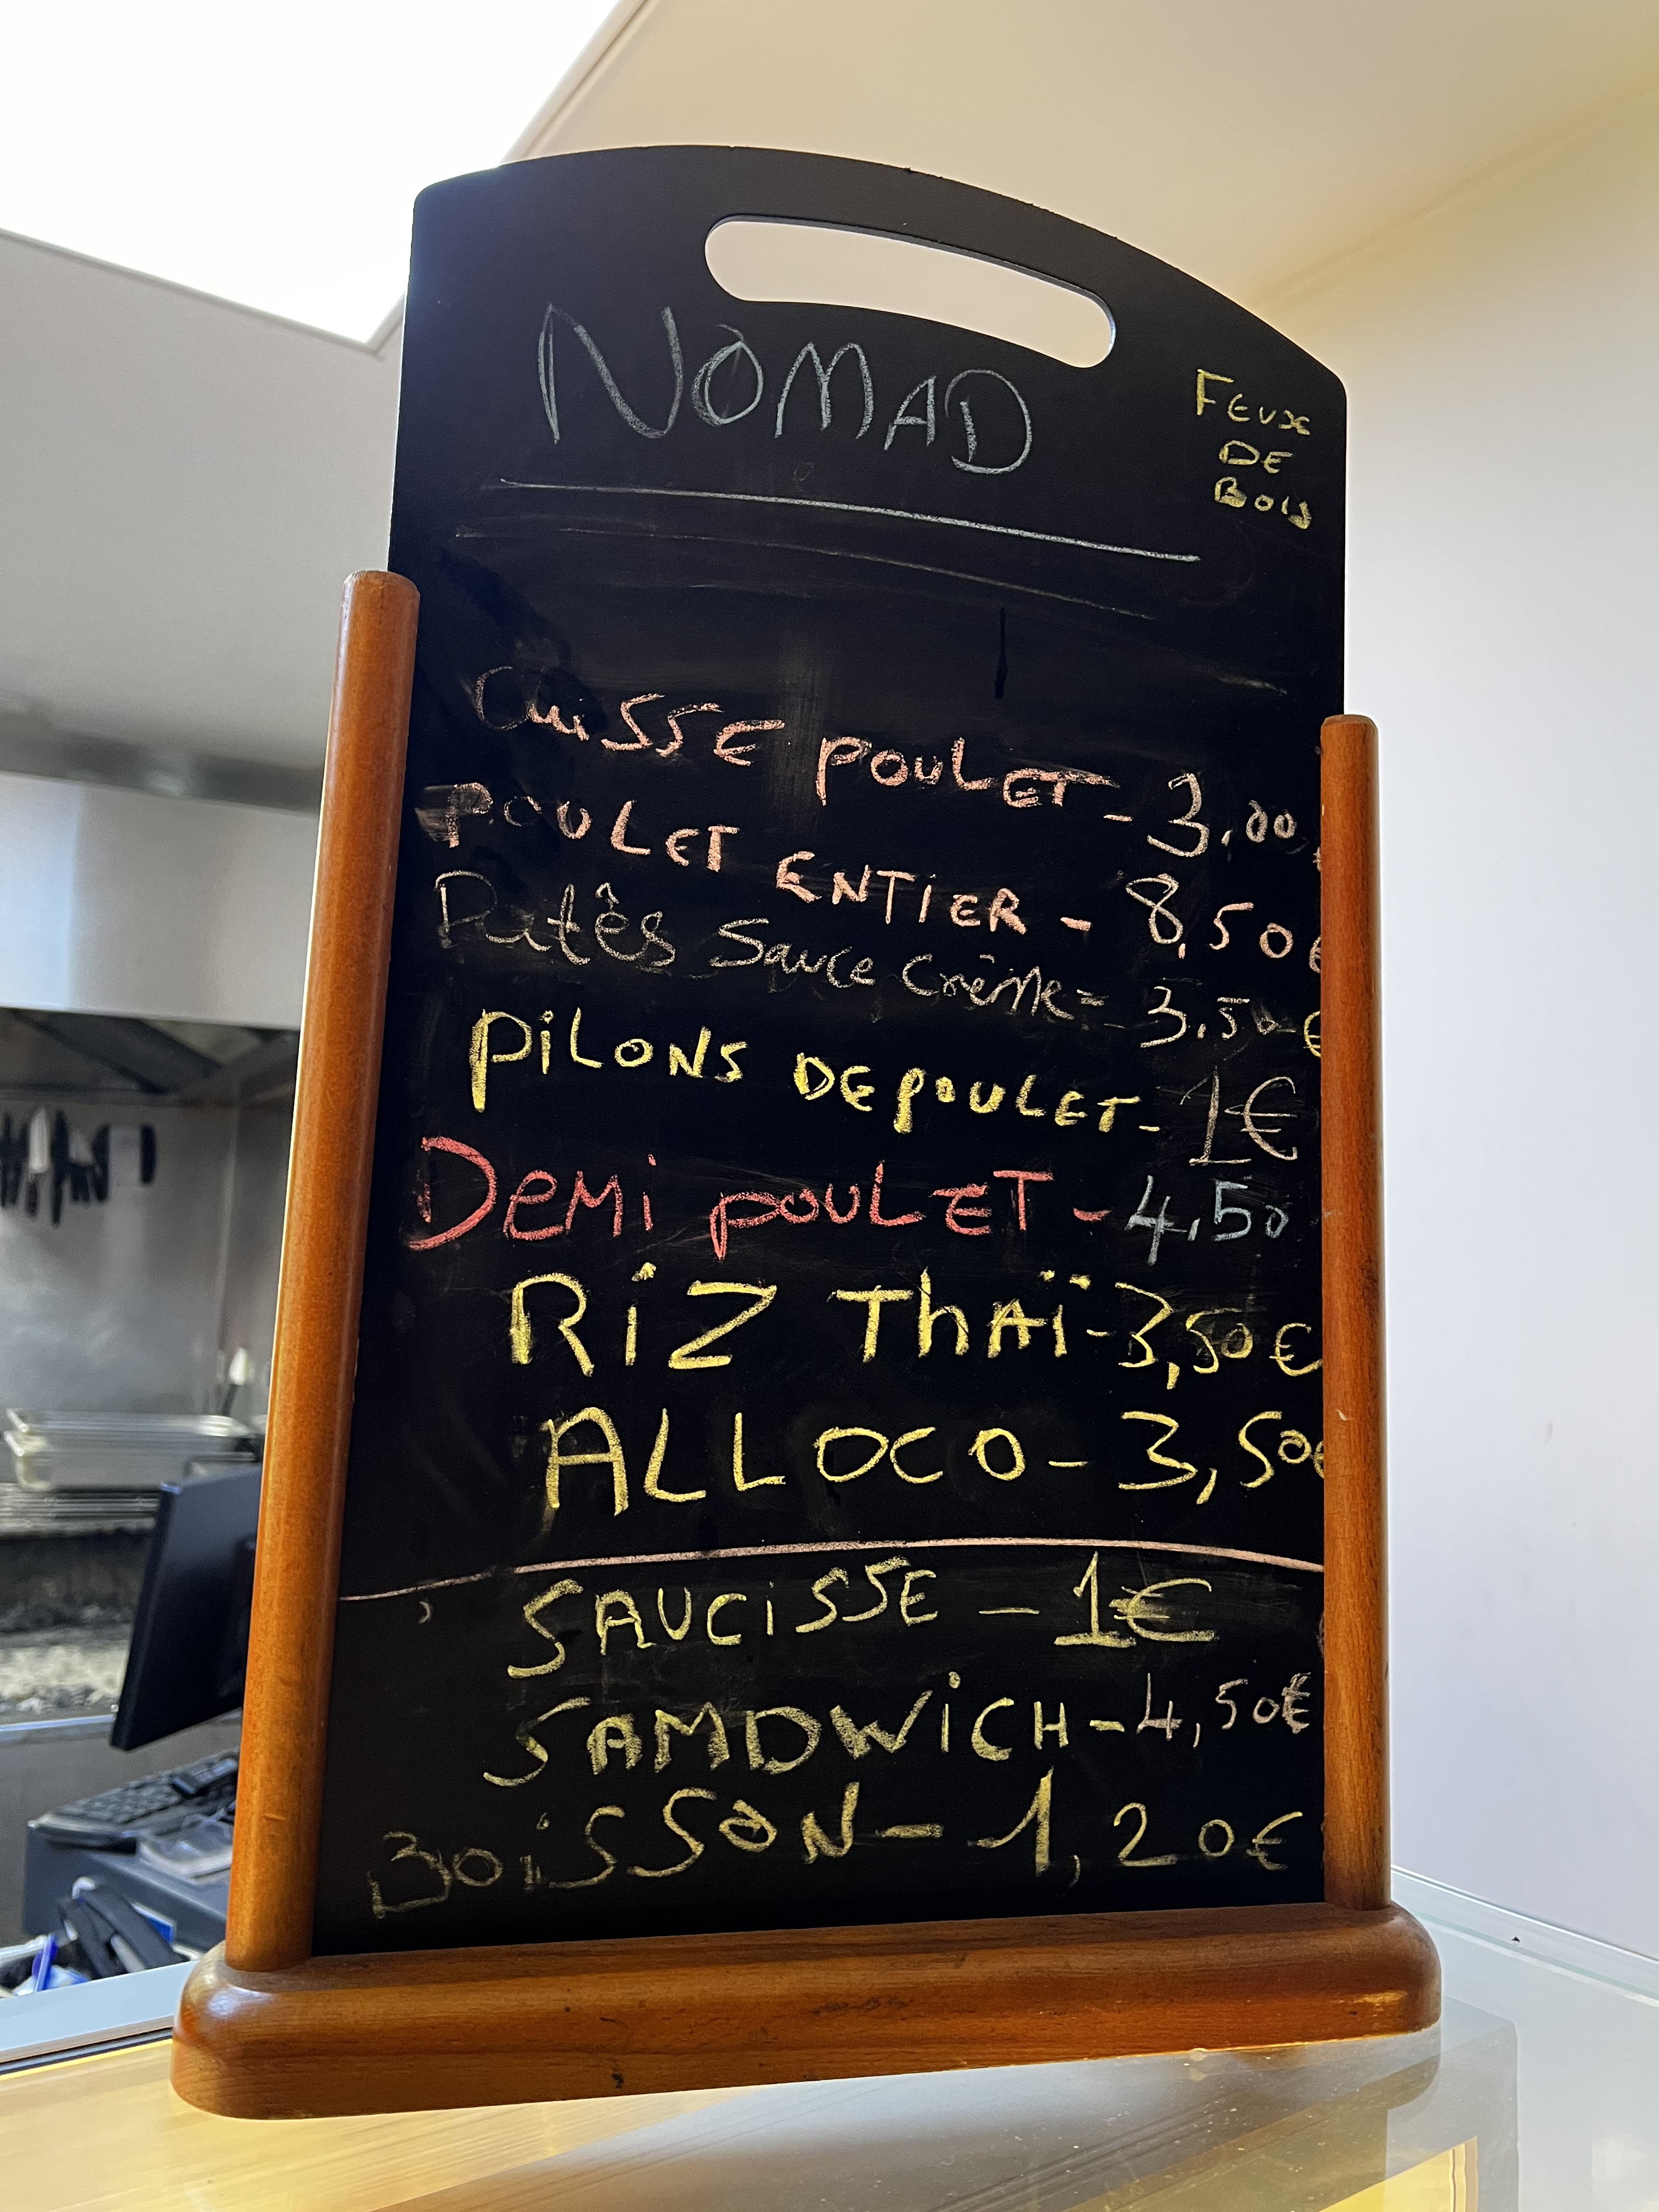 NOMAD
FEUX
DE
BOIS
CuiSSE POULET - 3,00
POULET ENTiER - 8,50€
Patês Sauce Crème - 3,50€
PiLONS DE POULET - 1€
DEMi POULET - 4,50
RiZ THAÏ - 3,50€
ALLOCO - 3,50€
SAUCiSSE - 1€
SAMDWiCH - 4,50€
BOiSSON - 1,20€